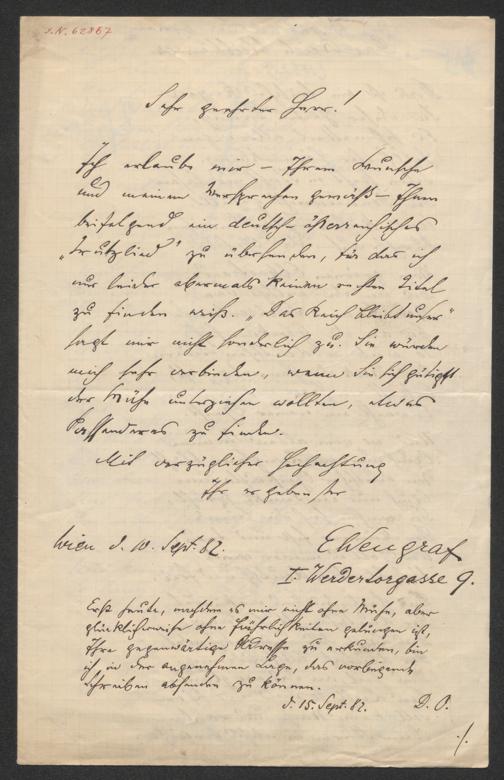 I.N. 62867
Sehr geehrter Herr!
Ich erlaube mir – Ihrem Wunsche
und meinem Versprechen gemäß – Ihnen
beifolgend ein deutsch-österreichisches
„Trutzlied" zu übersenden, für das ich
nur leider abermals keinen rechten Titel
zu finden weiß. „Das Reich bleibt unser"
sagt mir nicht sonderlich zu. Sie würden
mich sehr verbinden, wenn Sie sich gütigst
der Mühe unterziehen wollten, etwas
Passenderes zu finden.
Mit vorzüglicher Hochachtung
Ihr ergebenster
Wien d. 10. Sept. 82.
EWengraf
I. Werderthorgasse 9.
Erst heute, nachdem es mir nicht ohne Mühe, aber
glücklicherweise ohne Fährlichkeiten gelungen ist,
Ihre gegenwärtige Adresse zu erkunden, bin
ich in der angenehmen Lage, das vorliegende
Schreiben absenden zu können.
d. 15. Sept. 82. D. O.
./.